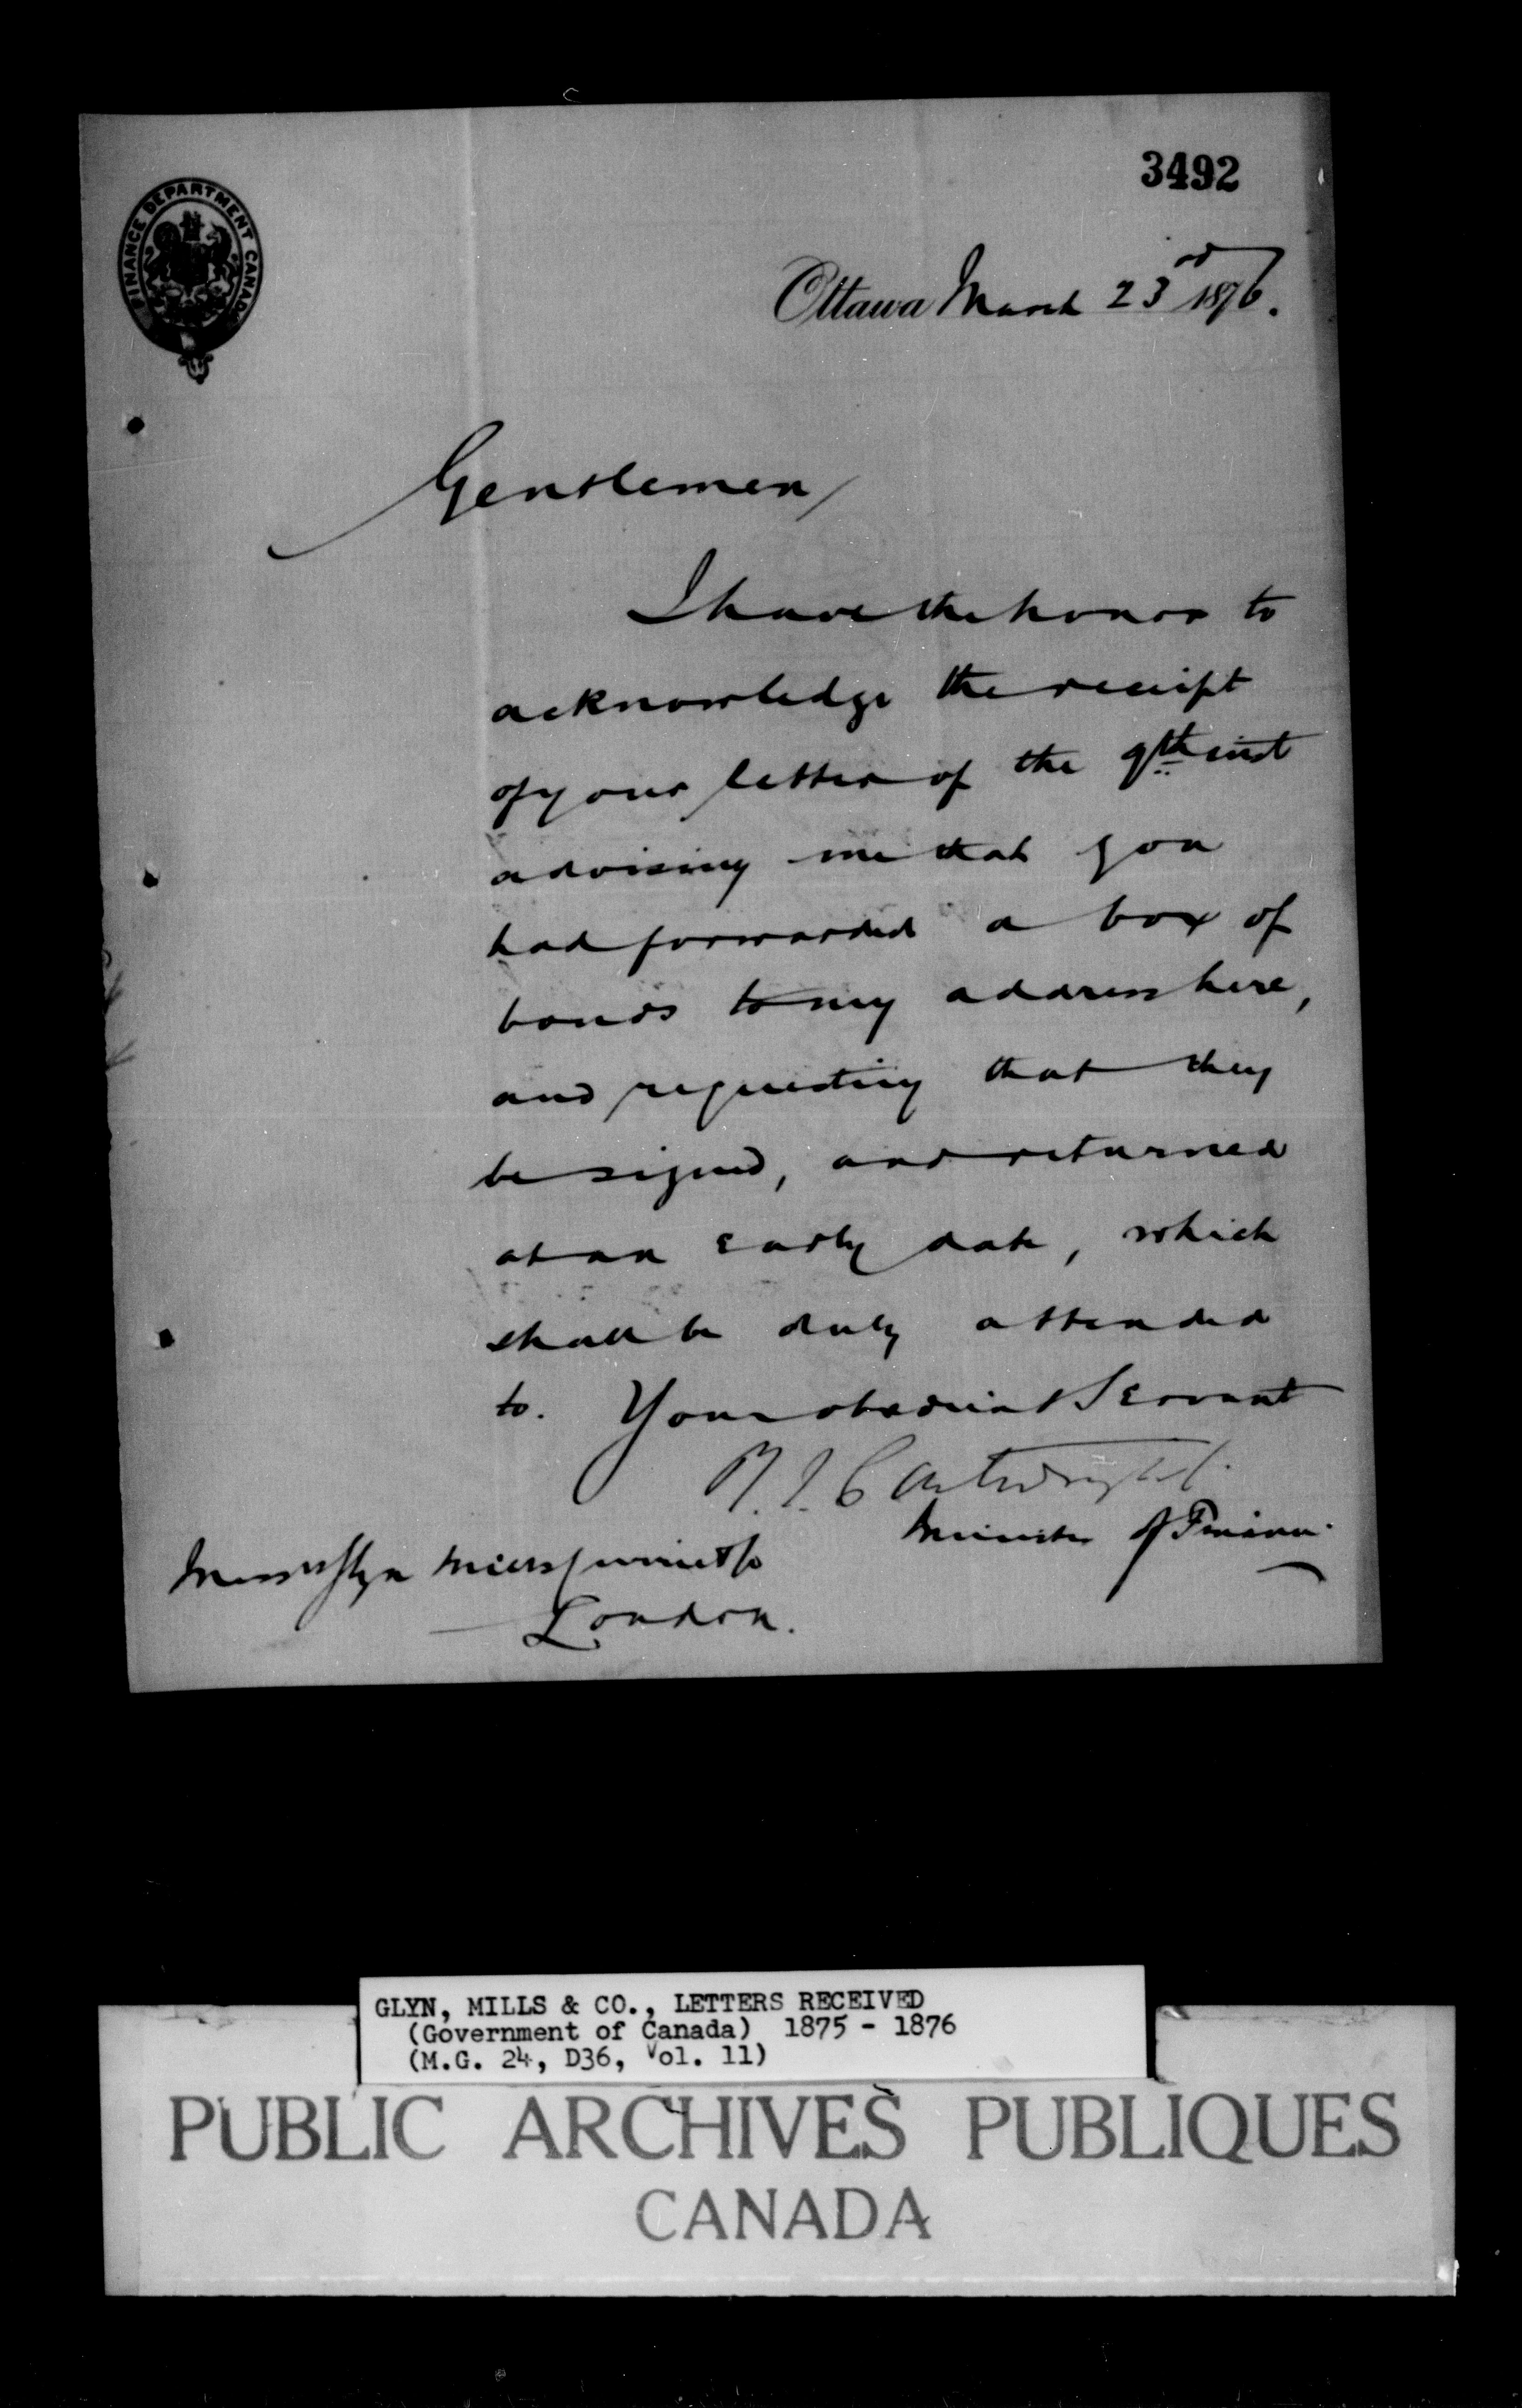 3492
FINANCE DEPARTMENT CANADA
Ottawa March 23rd 1876.
Gentlemen,
I have the honor to
acknowledge the receipt
of your letter of the 9th inst
advising me that you
had forwarded a box of
bonds to my address here,
and requesting that they
be signed, and returned
at an early date, which
shall be duly attended
to. Your obedient Servant
R. J. Cartwright.
Minister of Finance.
Messrs Glyn Mills Currie & Co
London.
GLYN, MILLS & CO., LETTERS RECEIVED
(Government of Canada) 1875 - 1876
(M.G. 24, D36, Vol. 11)
PUBLIC ARCHIVES PUBLIQUES
CANADA